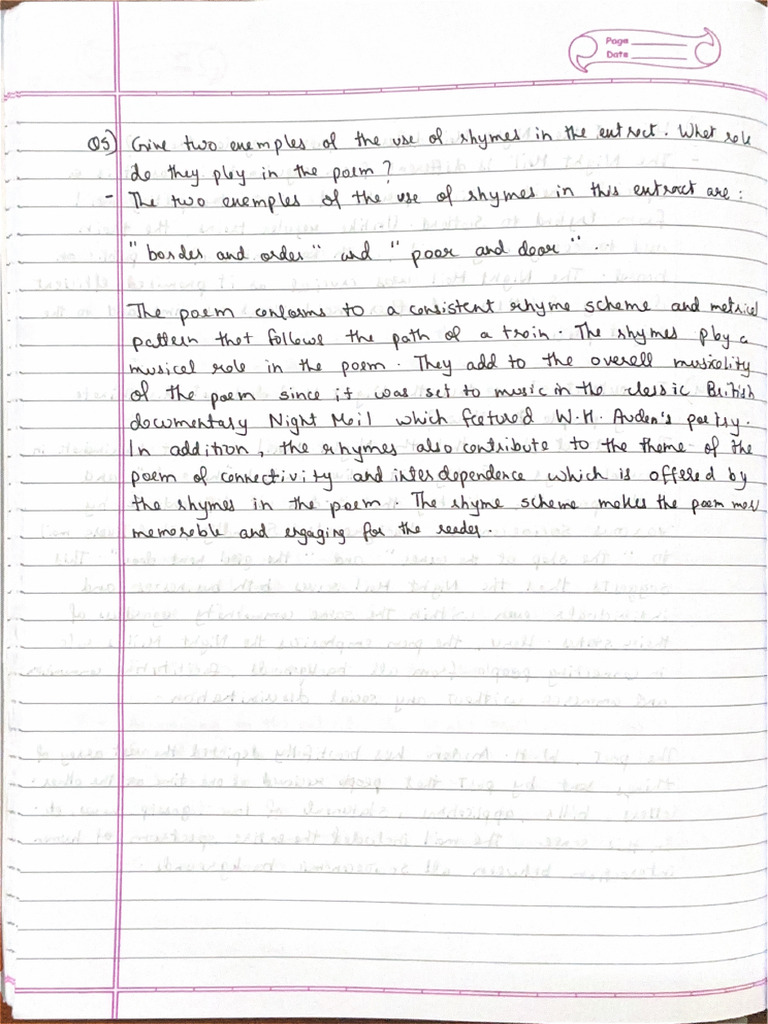 Page
Date
Q5) Give two examples of the use of rhymes in the extract. What role
do they play in the poem?
- The two examples of the use of rhymes in this extract are:
"border and order" and "poor and door".
The poem conforms to a consistent rhyme scheme and metrical
pattern that follows the path of a train. The rhymes play a
musical role in the poem. They add to the overall musicality
of the poem since it was set to music in the classic British
documentary Night Mail which featured W.H. Auden's poetry.
In addition, the rhymes also contribute to the theme of the
poem of connectivity and interdependence which is offered by
the rhymes in the poem. The rhyme scheme makes the poem more
memorable and engaging for the reader.